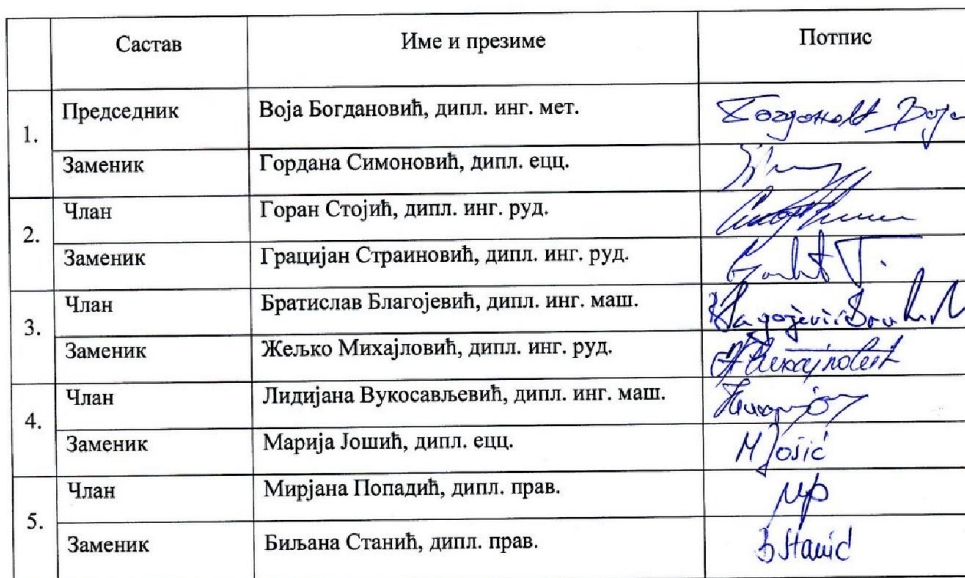 Састав Име и презиме Потпис
1. Председник Воја Богдановић, дипл. инг. мет.
Заменик Гордана Симоновић, дипл. ецц.
2. Члан Горан Стојић, дипл. инг. руд.
Заменик Грацијан Страиновић, дипл. инг. руд.
3. Члан Братислав Благојевић, дипл. инг. маш.
Заменик Жељко Михајловић, дипл. инг. руд.
4. Члан Лидијана Вукосављевић, дипл. инг. маш.
Заменик Марија Јошић, дипл. ецц. M Jošić
5. Члан Мирјана Попадић, дипл. прав.
Заменик Биљана Станић, дипл. прав. B Stanić